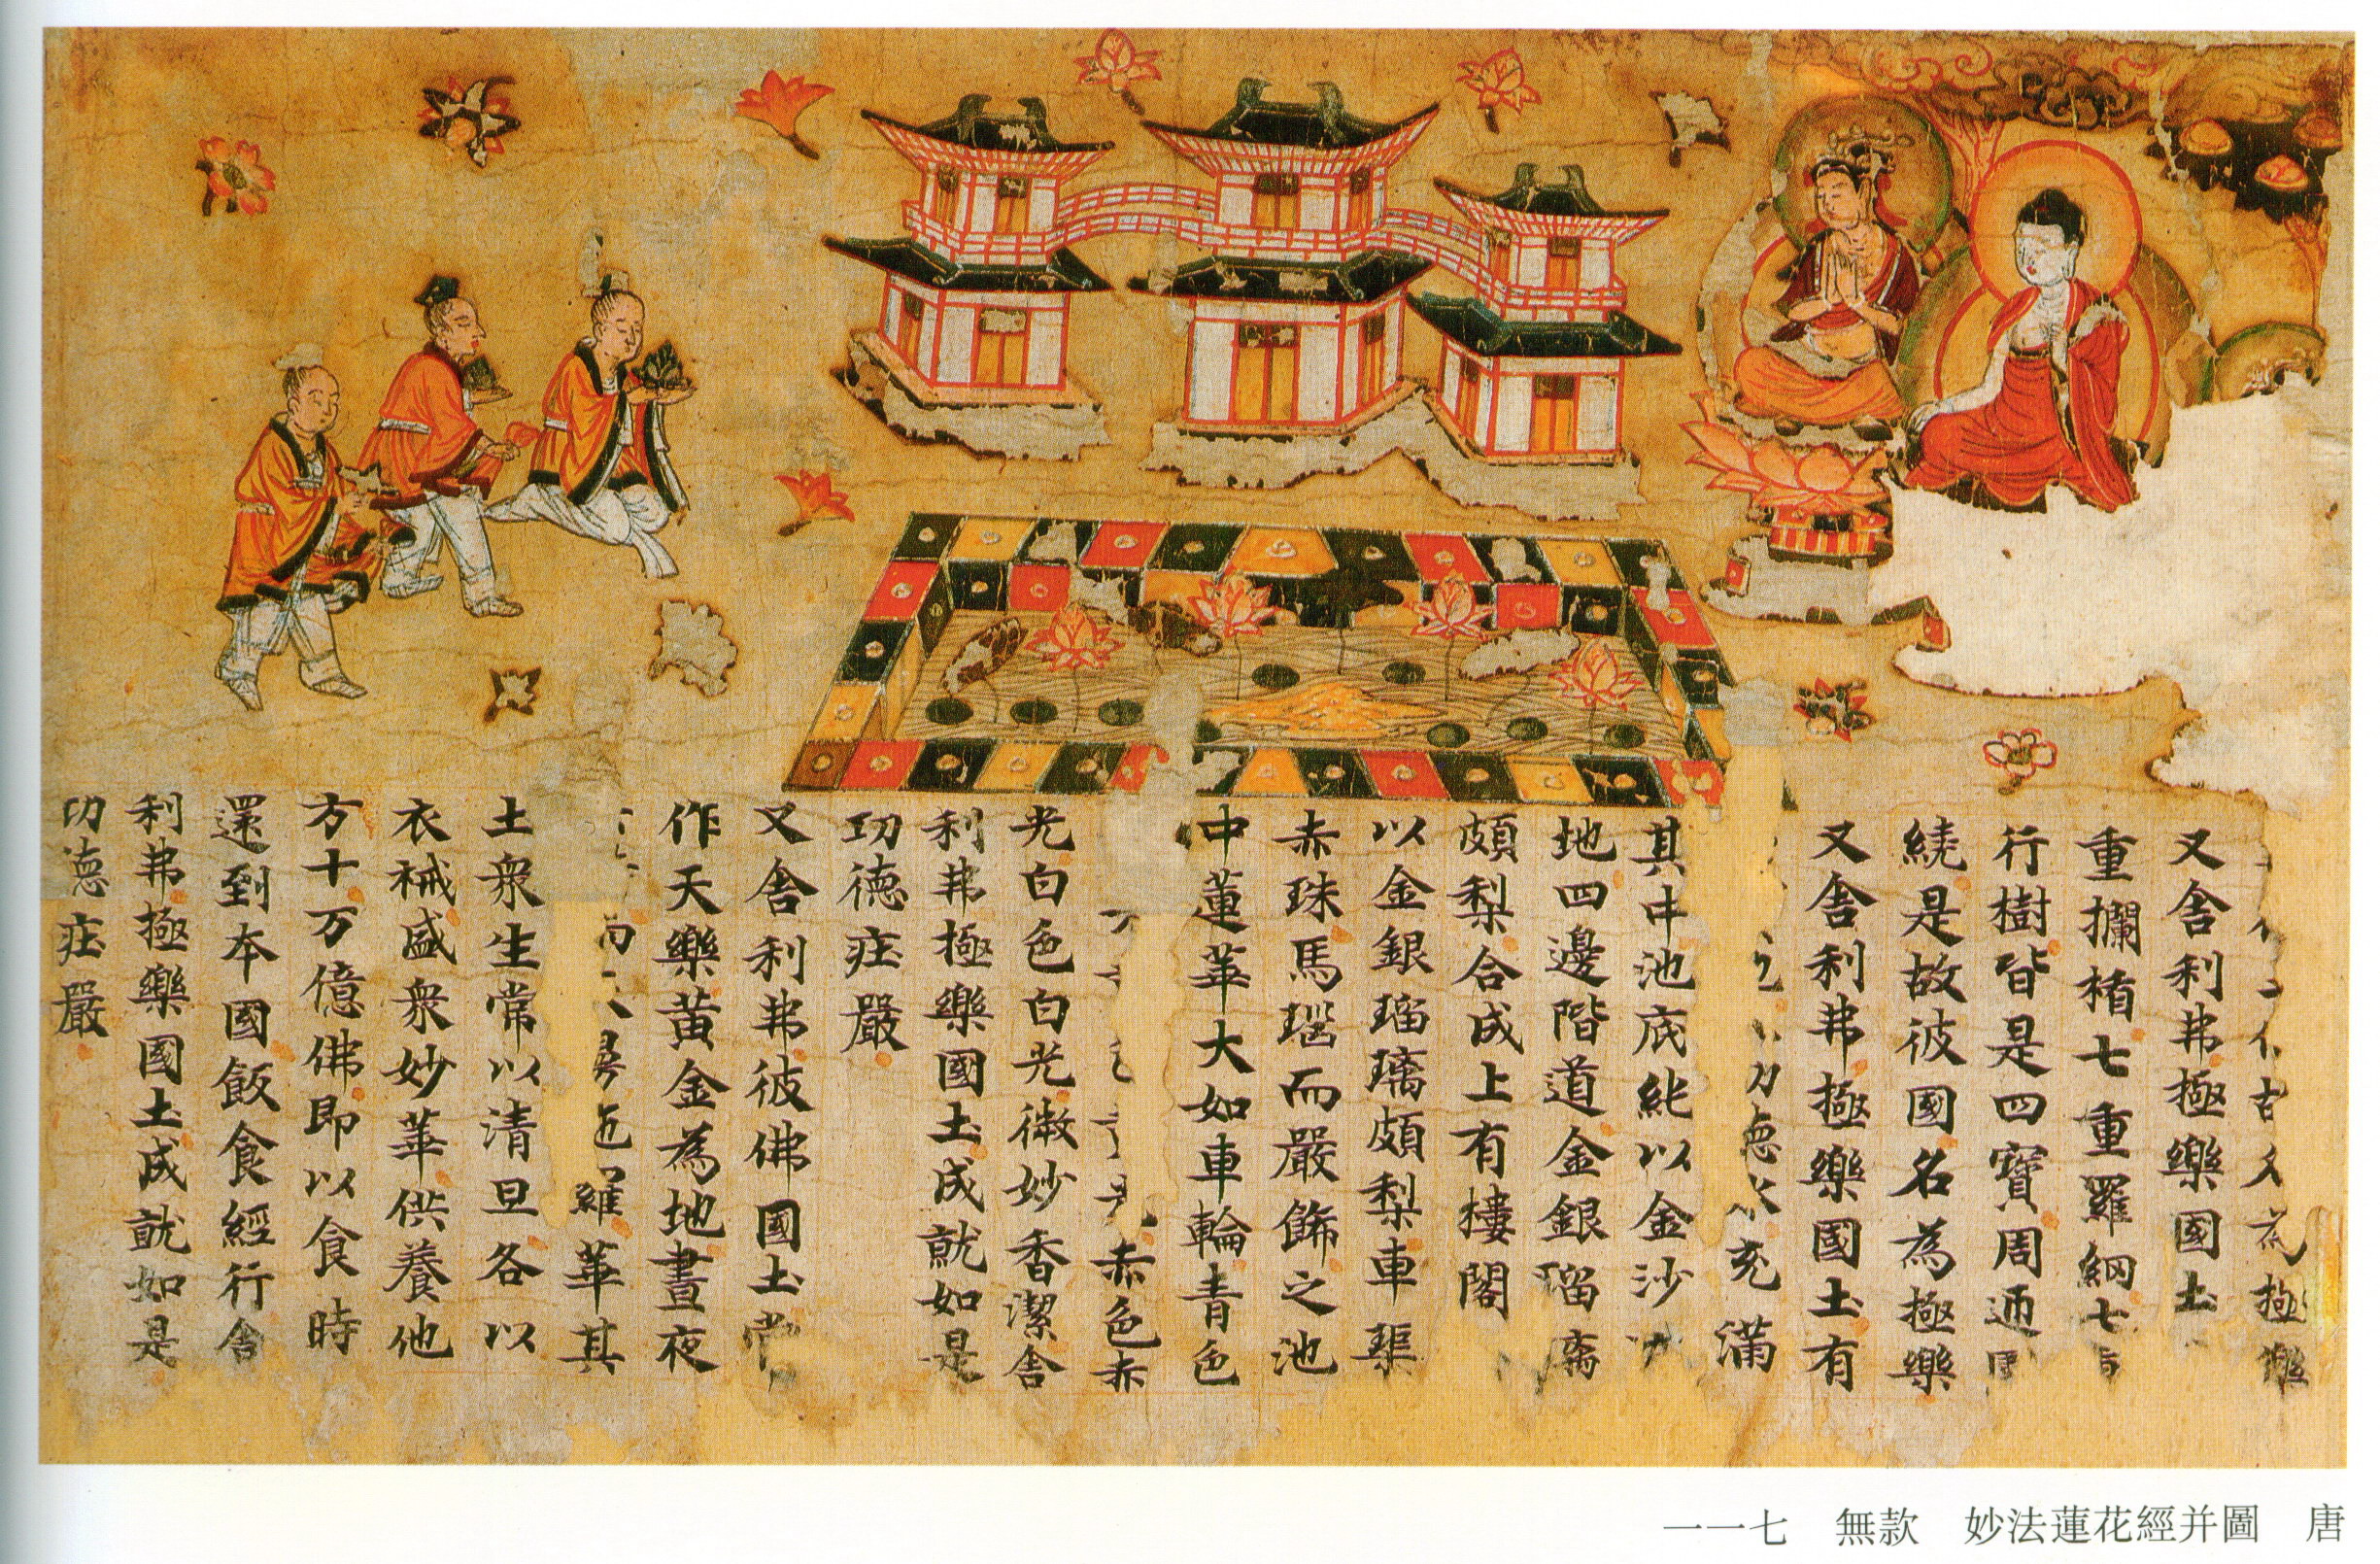 極
又舍利弗極樂國土
重攔楯七重羅網七
行樹皆是四寶周匝
繞是故彼國名為極樂
又舍利弗極樂國土有
德水充滿
其中池底純以金沙
地四邊階道金銀瑠璃
頗梨合成上有樓閣
以金銀瑠璃頗梨車渠
赤珠馬瑙而嚴飾之池
中蓮華大如車輪青色
赤色赤
光白色白光微妙香潔舍
利弗極樂國土成就如是
功德庄嚴
又舍利弗彼佛國土常
作天樂黃金為地晝夜
羅華其
土眾生常以清旦各以
衣裓盛眾妙華供養他
方十万億佛即以食時
還到本國飯食經行舍
利弗極樂國土成就如是
功德庄嚴
一一七　無款　妙法蓮花經并圖　唐